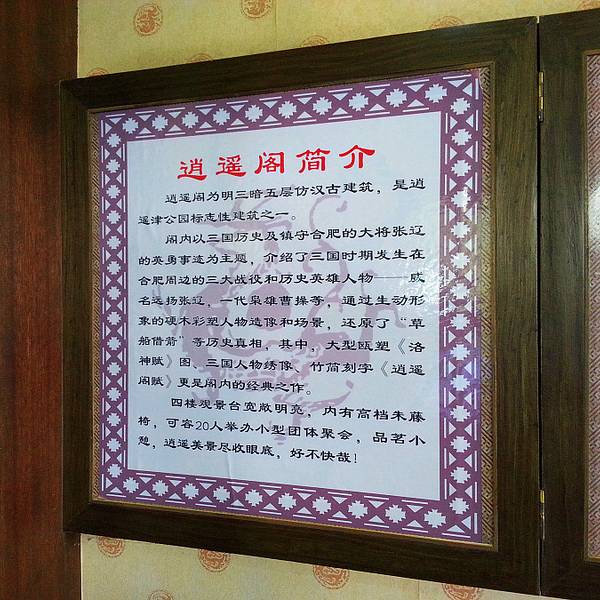 逍遥阁简介
逍遥阁为明三暗五层仿汉古建筑，是逍
遥津公园标志性建筑之一。
阁内以三国历史及镇守合肥的大将张辽
的英勇事迹为主题，介绍了三国时期发生在
合肥周边的三大战役和历史英雄人物——威
名远扬张辽、一代枭雄曹操等，通过生动形
象的硬木彩塑人物造像和场景，还原了“草
船借箭”等历史真相，其中，大型瓯塑《洛
神赋》图、三国人物绣像、竹简刻字《逍遥
阁赋》更是阁内的经典之作。
四楼观景台宽敞明亮，内有高档朱藤
椅，可容20人举办小型团体聚会，品茗小
憩，逍遥美景尽收眼底，好不快哉！